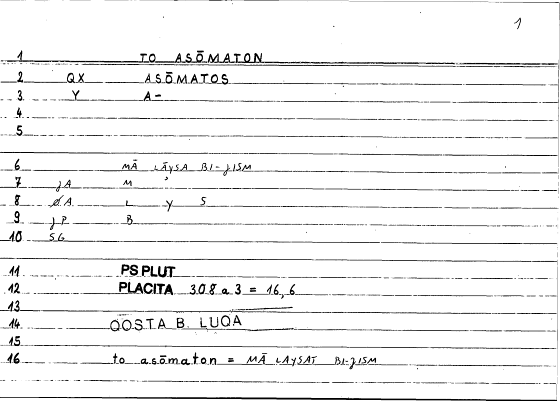 1
1 TO ASŌMATON
2 QX ASŌMATOS
3 Y A-
4
5
6 MĀ LAYSA BI-JISM
7 JA M
8 ØA L Y S
9 JP B
10 SG
11 PS PLUT
12 PLACITA 308 a 3 = 16,6
13
14 QOSTA B. LUQA
15
16 to asōmaton = MĀ LAYSAT BI-JISM